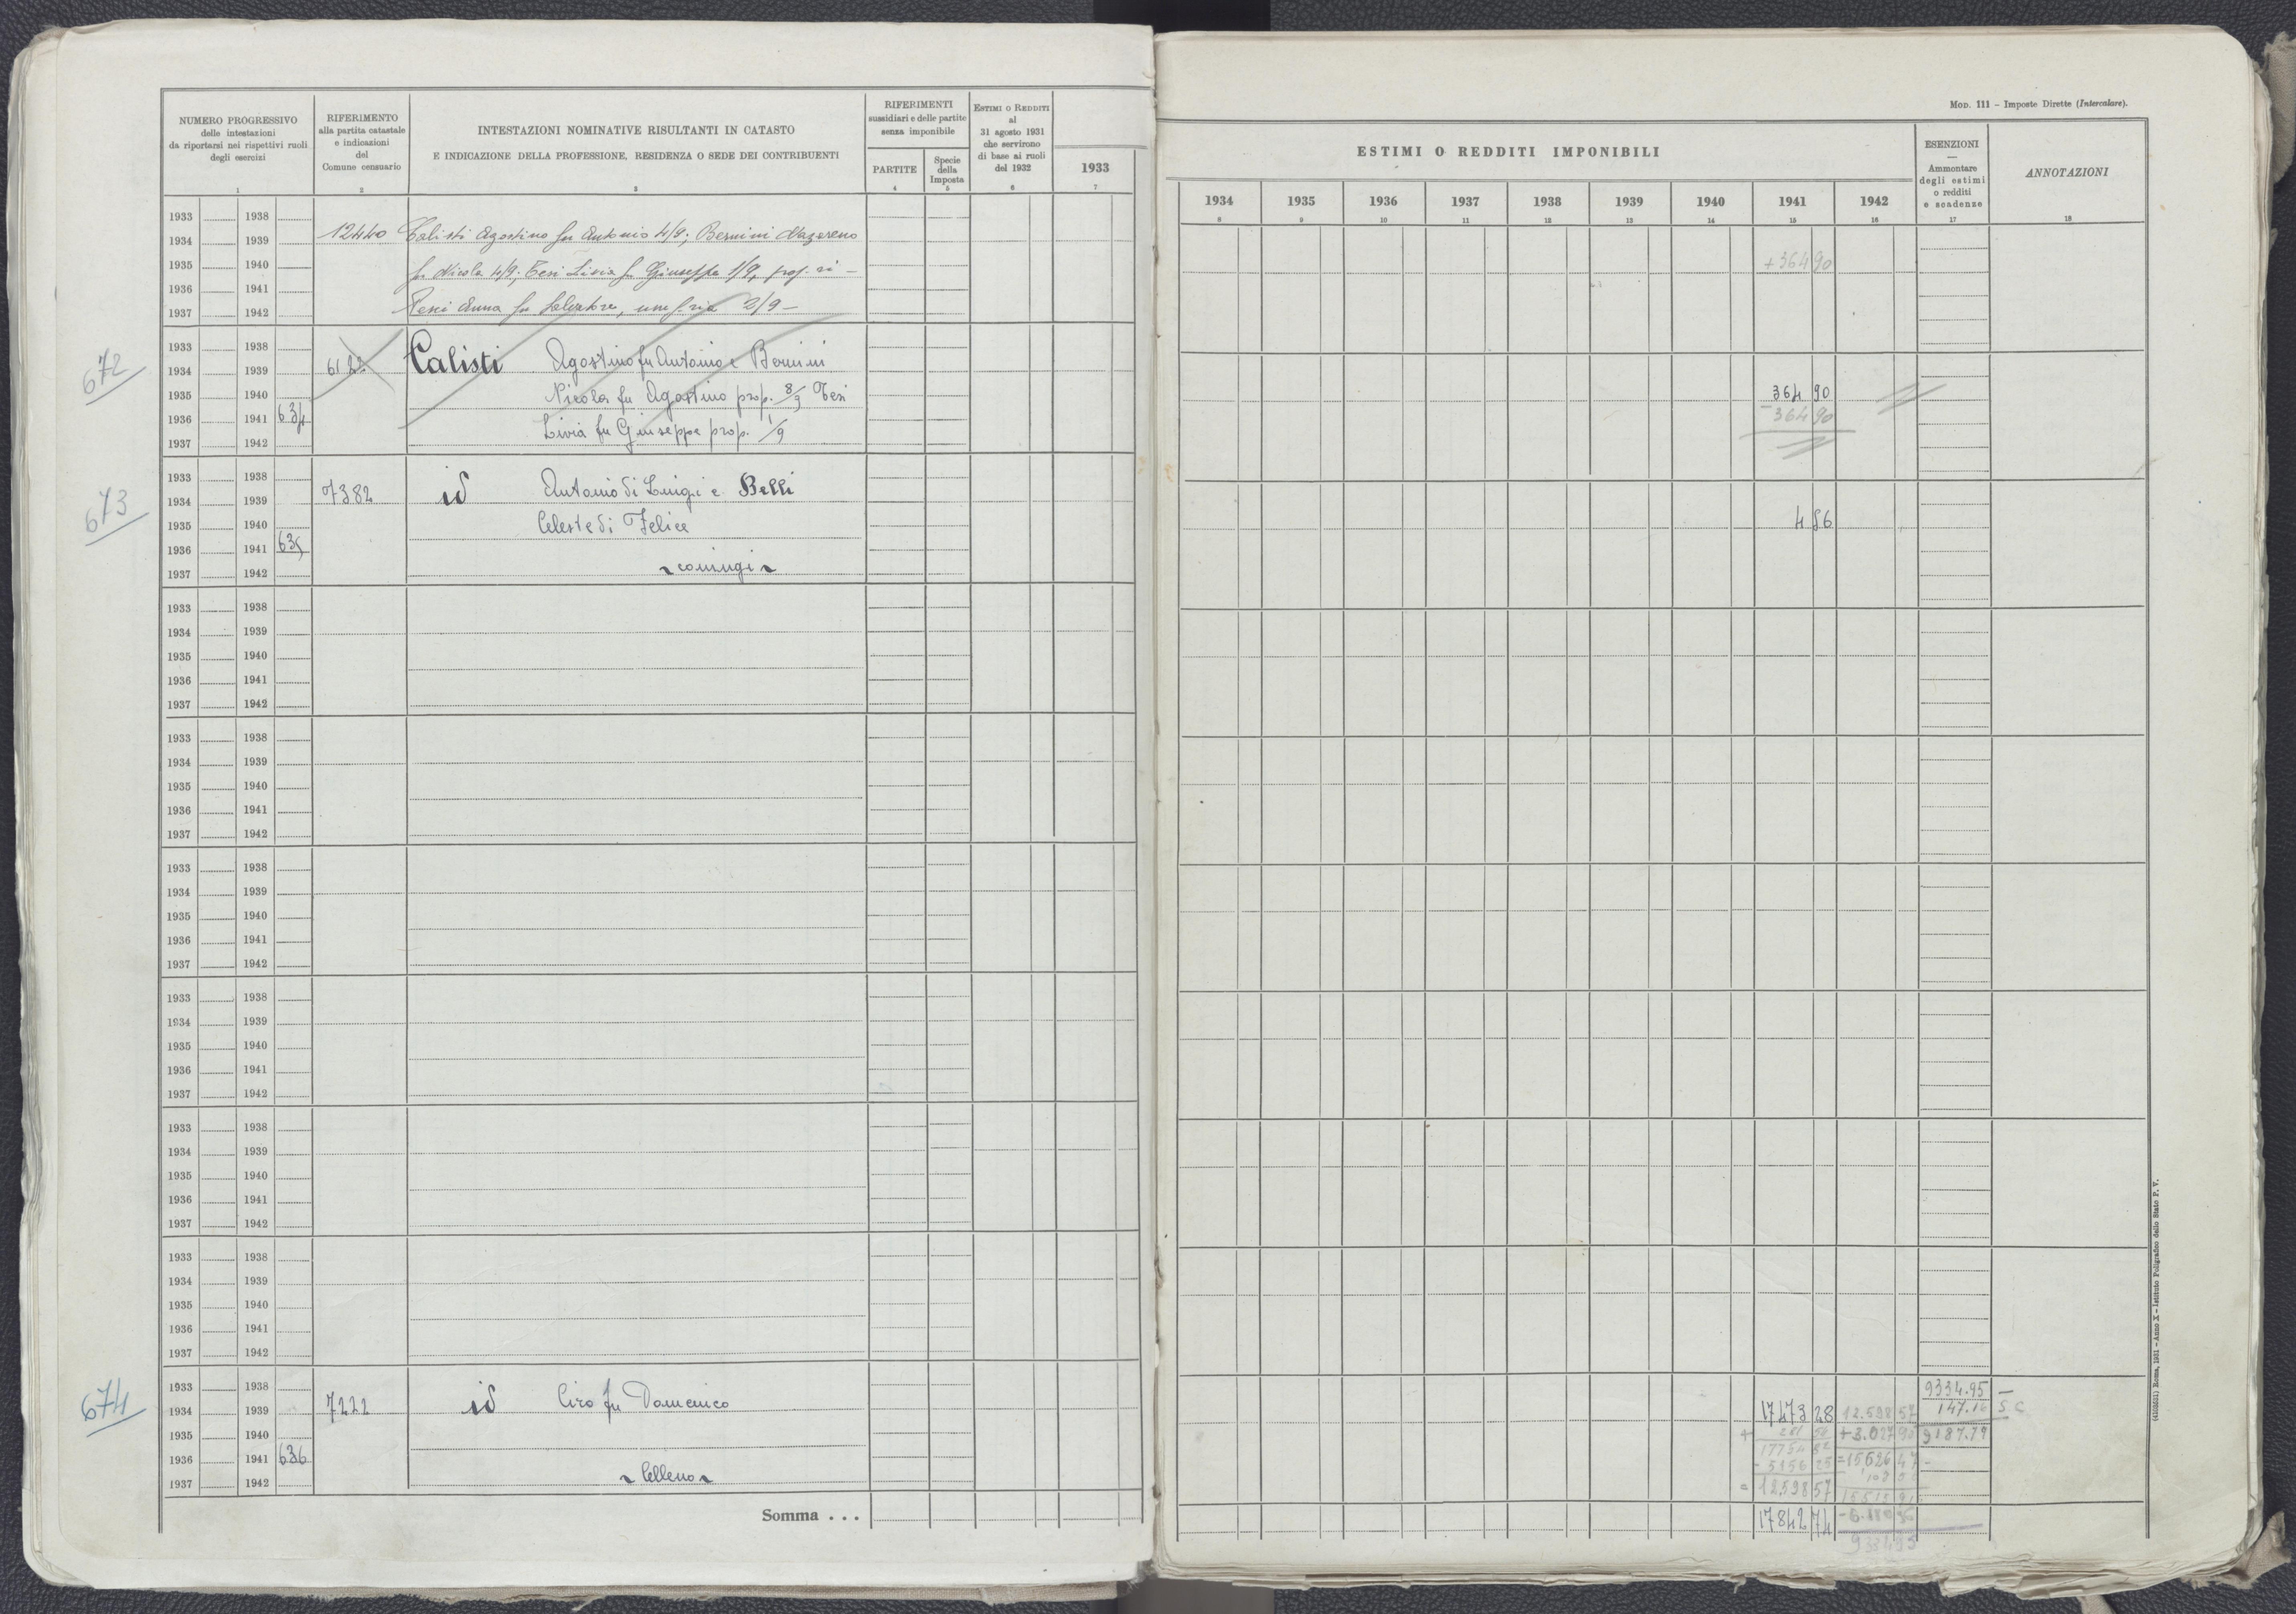 NUMERO PROGRESSIVO
delle intestazioni
da riportarsi nei rispettivi ruoli
degli esercizi
1
RIFERIMENTO
alla partita catastale
e indicazioni
del
Comune censuario
2
INTESTAZIONI NOMINATIVE RISULTANTI IN CATASTO
E INDICAZIONE DELLA PROFESSIONE, RESIDENZA O SEDE DEI CONTRIBUENTI
3
RIFERIMENTI
sussidiari e delle partite
senza imponibile
PARTITE
4
Specie
della
Imposta
5
ESTIMI O REDDITI
al
31 agosto 1931
che servirono
di base ai ruoli
del 1932
6
1933
7
1933 1938
12440 Calisti Agostino fu Antonio 4/9; Bernini Nazareno
1934 1939
1935 1940
fu Nicola 4/9; Tesi Livia fu Giuseppe 1/9, prop. ri-
1936 1941
Pesci Anna fu Salvatore, 2/9 -
1937 1942
672
1933 1938
1934 1939
Calisti Agostino fu Antonio e Bernini
1935 1940
Nicola fu Agostino prop. 8/9 Tesi
1936 1941 634
Livia fu Giuseppe prop. 1/9
1937 1942
673
1933 1938
7382 id Antonio di Luigi e Belli
1934 1939
1935 1940
Celeste di Felice
1936 1941 635
1937 1942
coniugi
1933 1938
1934 1939
1935 1940
1936 1941
1937 1942
1933 1938
1934 1939
1935 1940
1936 1941
1937 1942
1933 1938
1934 1939
1935 1940
1936 1941
1937 1942
1933 1938
1934 1939
1935 1940
1936 1941
1937 1942
1933 1938
1934 1939
1935 1940
1936 1941
1937 1942
1933 1938
1934 1939
1935 1940
1936 1941
1937 1942
674
1933 1938
1934 1939
7222 id Ciro fu Domenico
1935 1940
1936 1941 636
1937 1942
Celleno
Somma . . .
MOD. 111 - Imposte Dirette (Intercalare).
ESTIMI O REDDITI IMPONIBILI
1934 1935 1936 1937 1938 1939 1940 1941 1942
8 9 10 11 12 13 14 15 16
ESENZIONI
—
Ammontare
degli estimi
o redditi
e scadenze
17
ANNOTAZIONI
18
+ 364 90
364 90
- 364 90
4 56
9334.95 -
17473 28 12.598 57 147.16 S C
+ 281 54 + 3.027 90 9187.79
17754 82 = 15626 47
- 5156 25
= 12598 57
17842 74
9334 95
(4105031) Roma, 1931 - Anno X - Istituto Poligrafico dello Stato P. V.